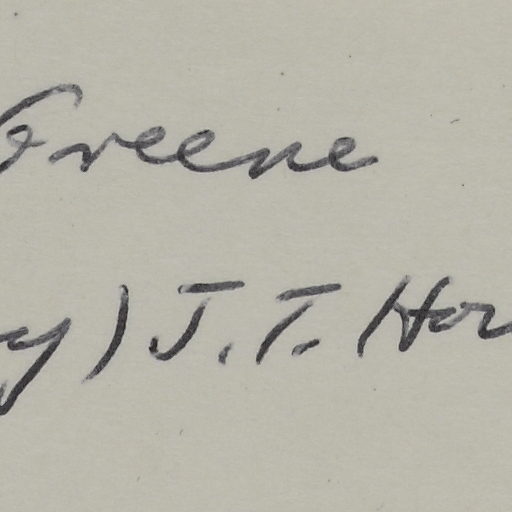 Greene
y) J. T. Hor